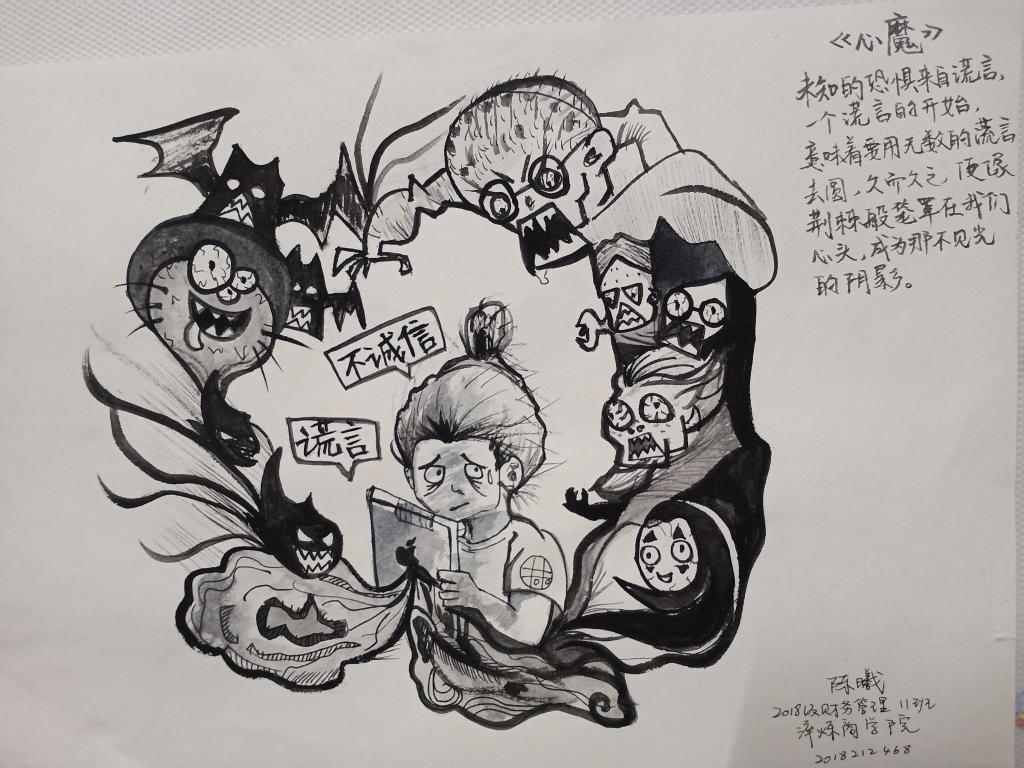 《心魔》
未知的恐惧来自谎言，
一个谎言的开始，
意味着要用无数的谎言
去圆，久而久之，便像
荆棘般笼罩在我们
心头，成为那不见光
的阴影。
不诚信
谎言
陈曦
2018级财务管理 11班
淬炼商学院
2018212468